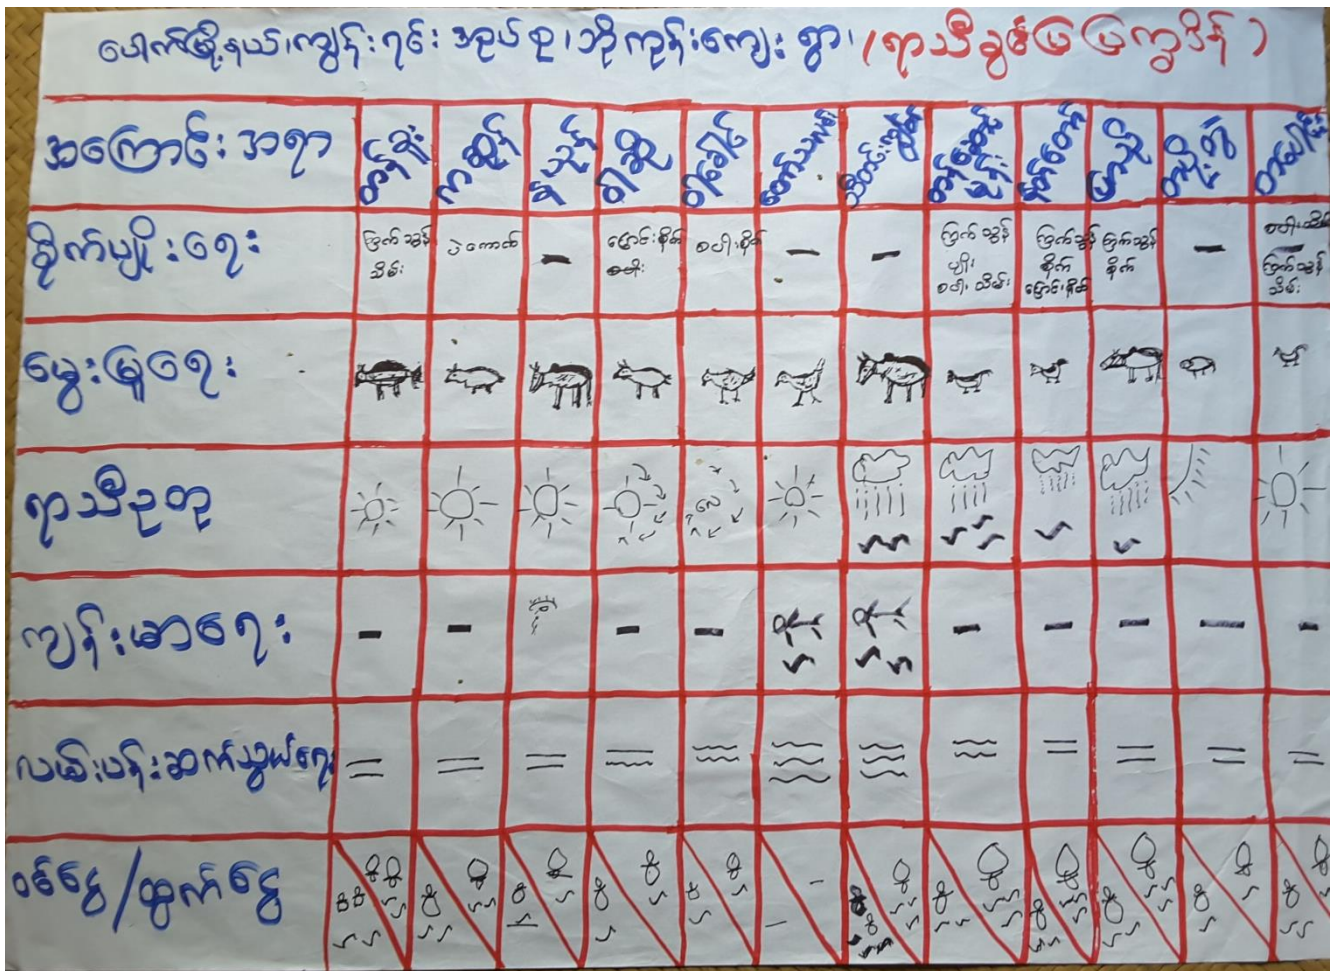 ပေါက်မြို့နယ်၊ကျွန်းရင်း အုပ်စု၊ဘိုကုန်းကျေးရွာ၊ (ရာသီခွင်ပြပြက္ခဒိန်)
အကြောင်းအရာ တန်ခူး ကဆုန် နယုန် ဝါဆို ဝါခေါင် တော်သလင်း သီတင်းကျွတ် တန်ဆောင်မုန်း နတ်တော် ပြာသို တပို့တွဲ တပေါင်း
စိုက်ပျိုးရေး ကြက်သွန် ပဲကောက် – ပြောင်းစိုက် စပါးစိုက် – – ကြက်သွန် ကြက်သွန် ကြက်သွန် – စပါးသိမ်း
သိမ်း ပျိုး စိုက် စိုက် ကြက်သွန်
စပါး သိမ်း ပြောင်းစိုက် သိမ်း
မွေးမြူရေး
ရာသီဥတု လေ
ကျန်းမာရေး – – – – – – – – –
လမ်းပန်းဆက်သွယ်ရေး
ဝင်ငွေ/ထွက်ငွေ